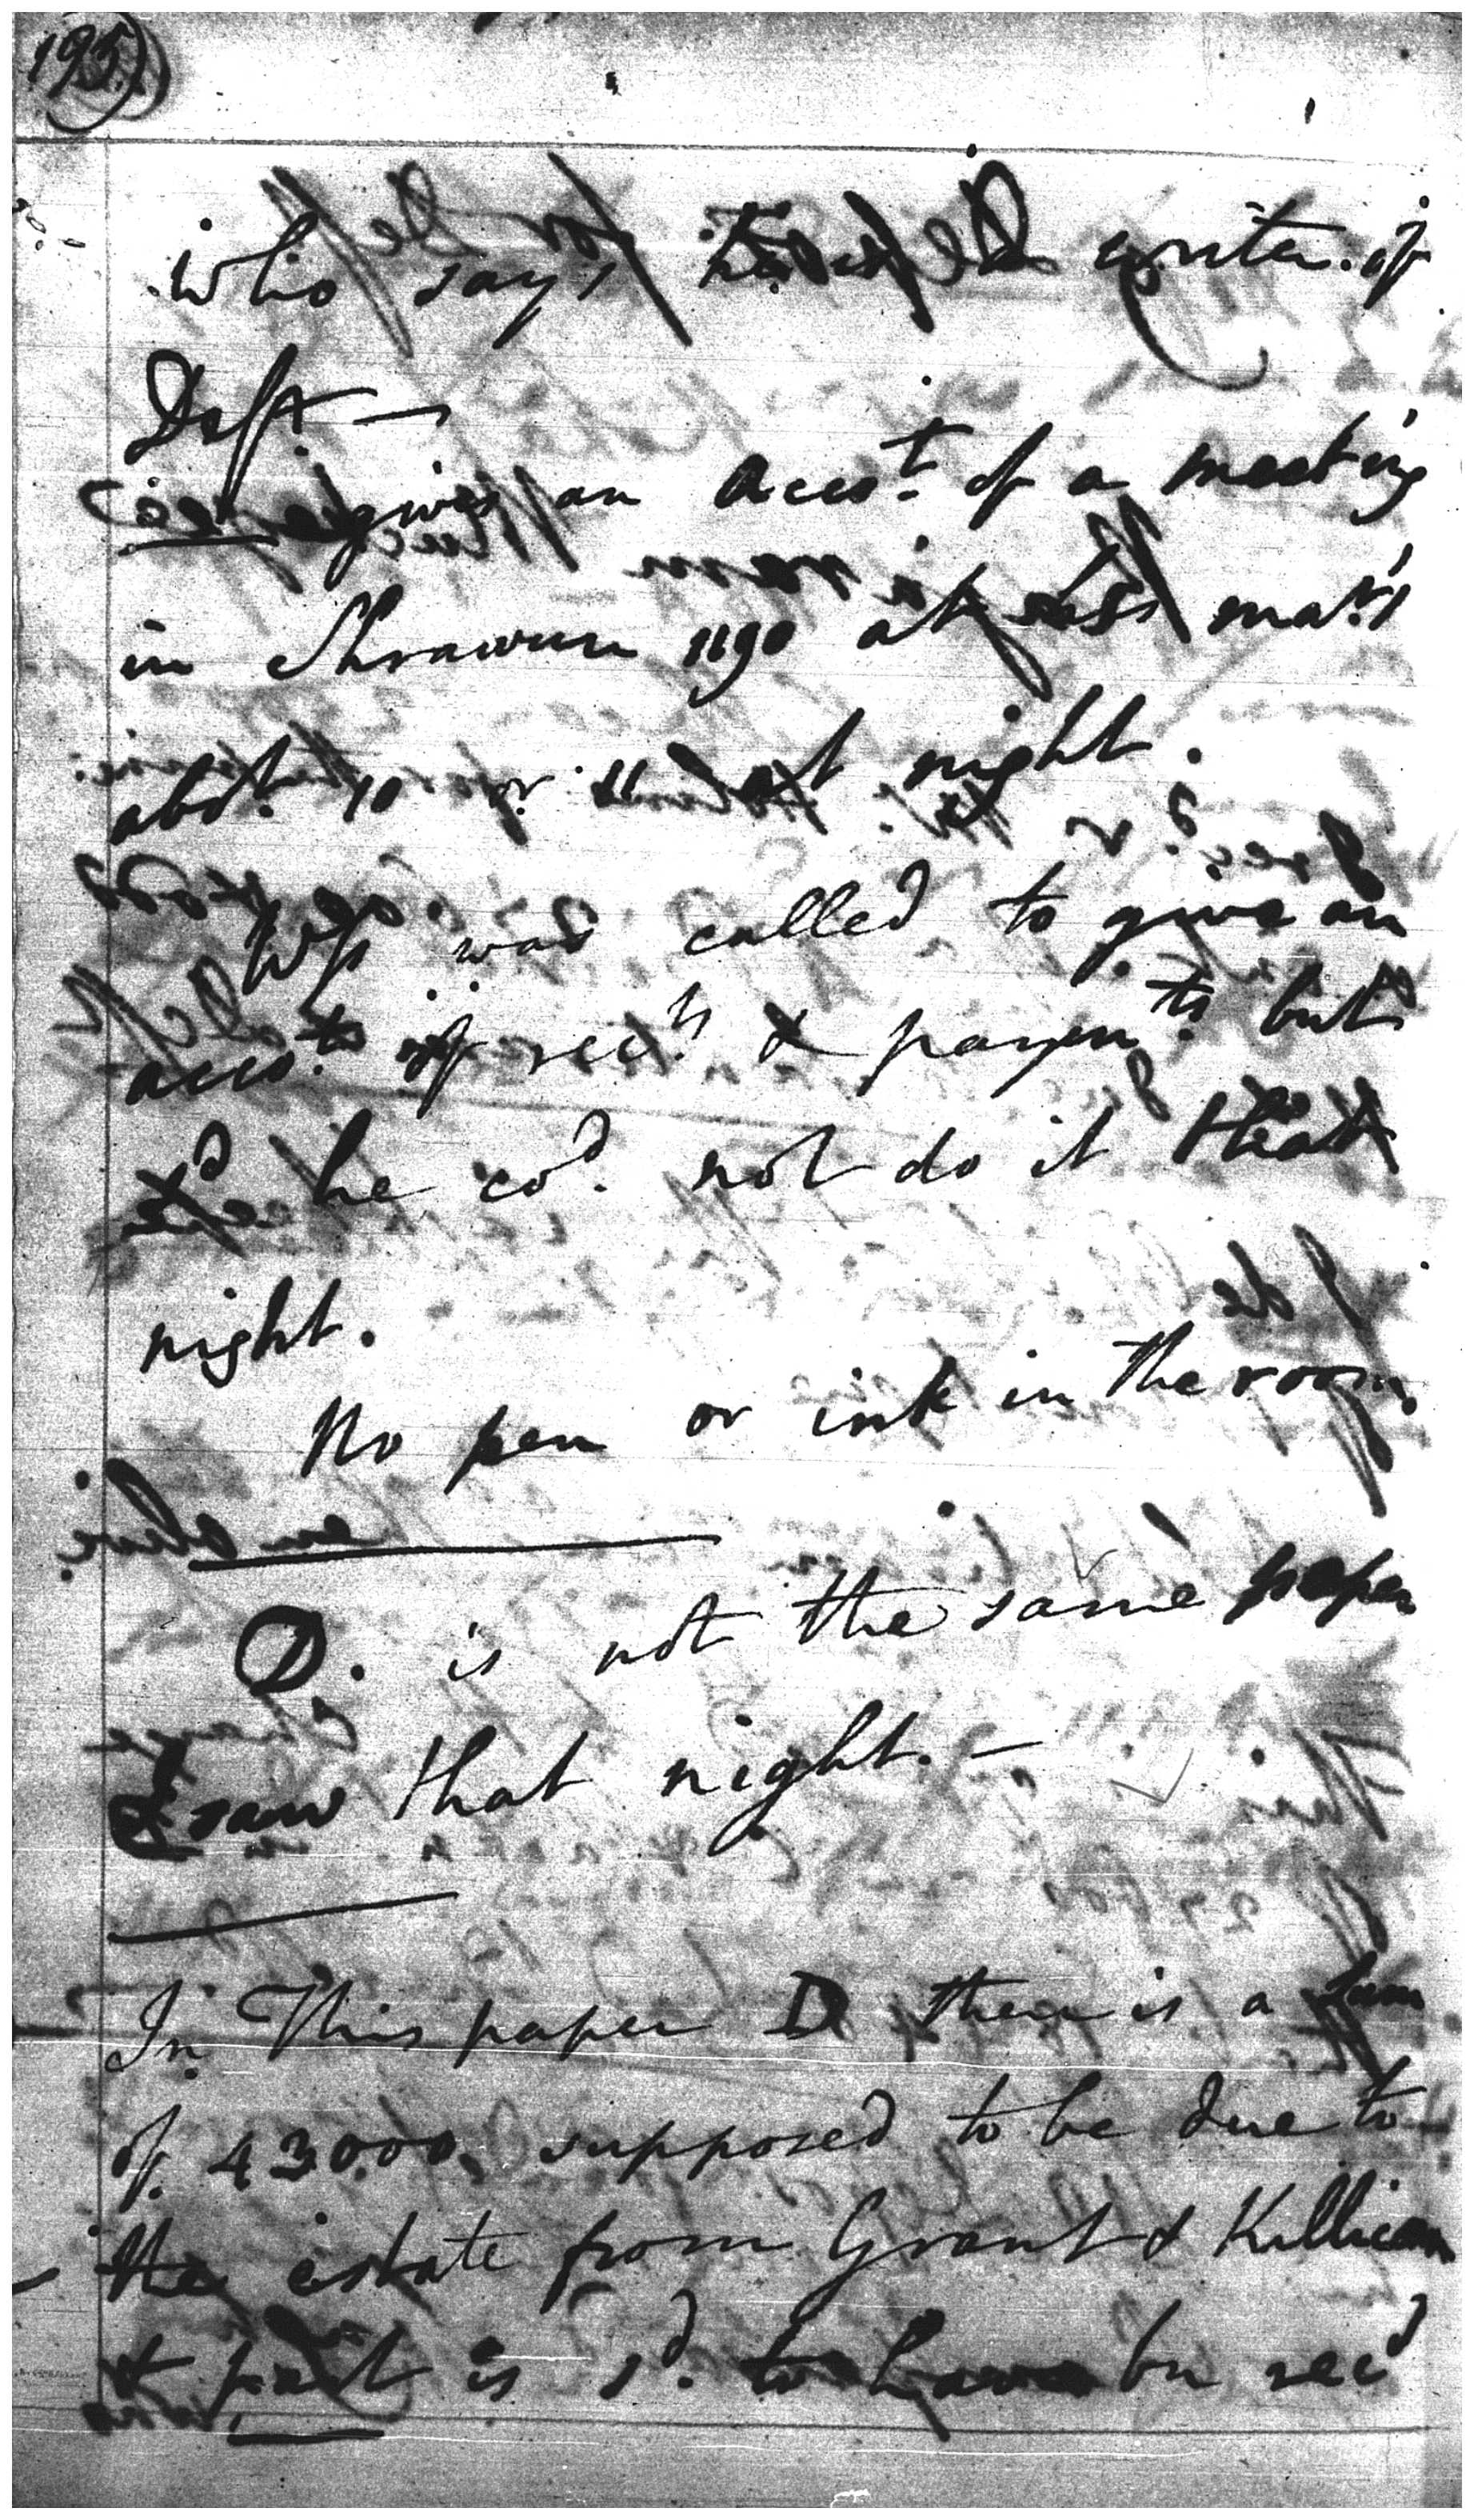 195
who says he is writer of
Deft. —
gives an accot. of a meeting
in Shrawun 1190 at
abot. 10 or 11 at night.
Wss was called to give an
accot. of recd. & paymts. but
sd he cod. not do it that
night.
No pen or ink in the room.
D. is not the same paper
I saw that night. —
In This paper D there is a sum
of 43000, supposed to be due to
the estate from Grant & Killican
& part is sd. to have bn recd